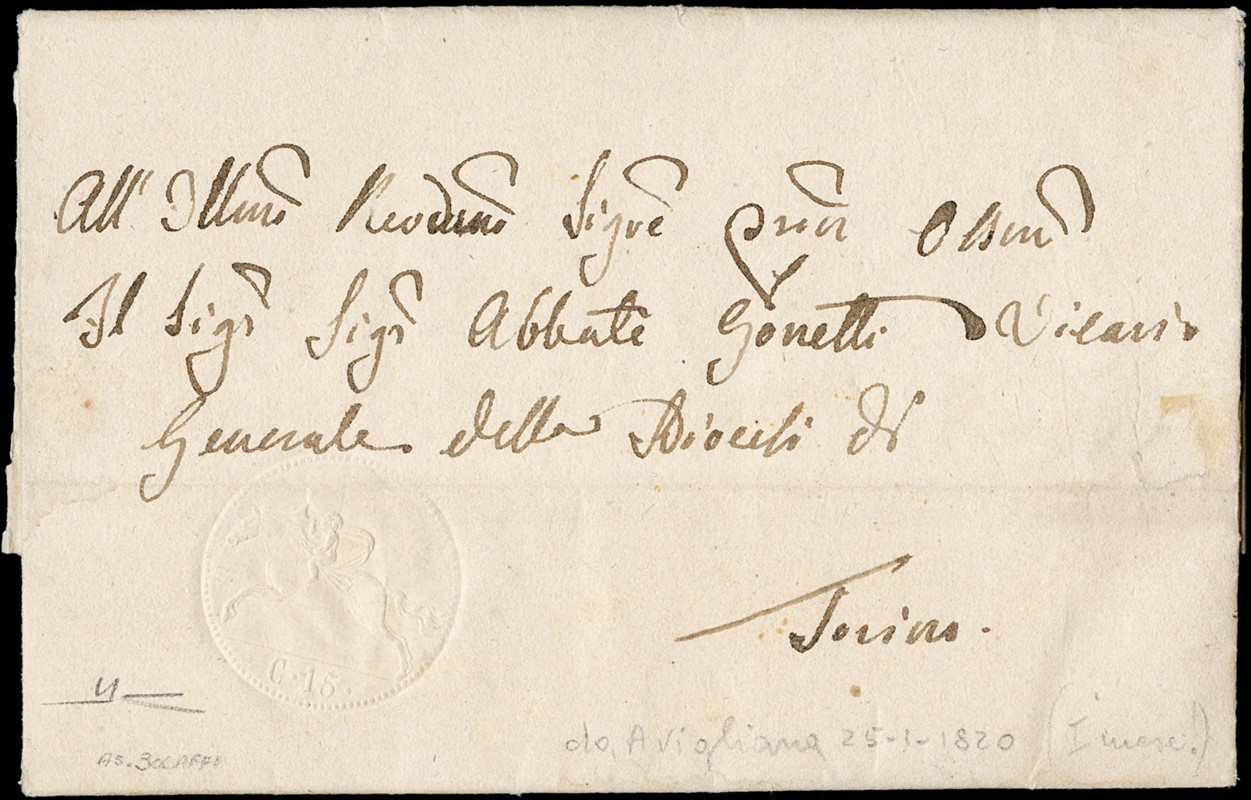 All' Illmo Revdmo Sigre Pnōn Ossmo
Il Sigr Sigr Abbate Gonetti Vicario
Generale della Diocesi di
Torino.
C. 15.
da Avigliana 25-1-1820 (I mese!)
AS. BOLAFFI